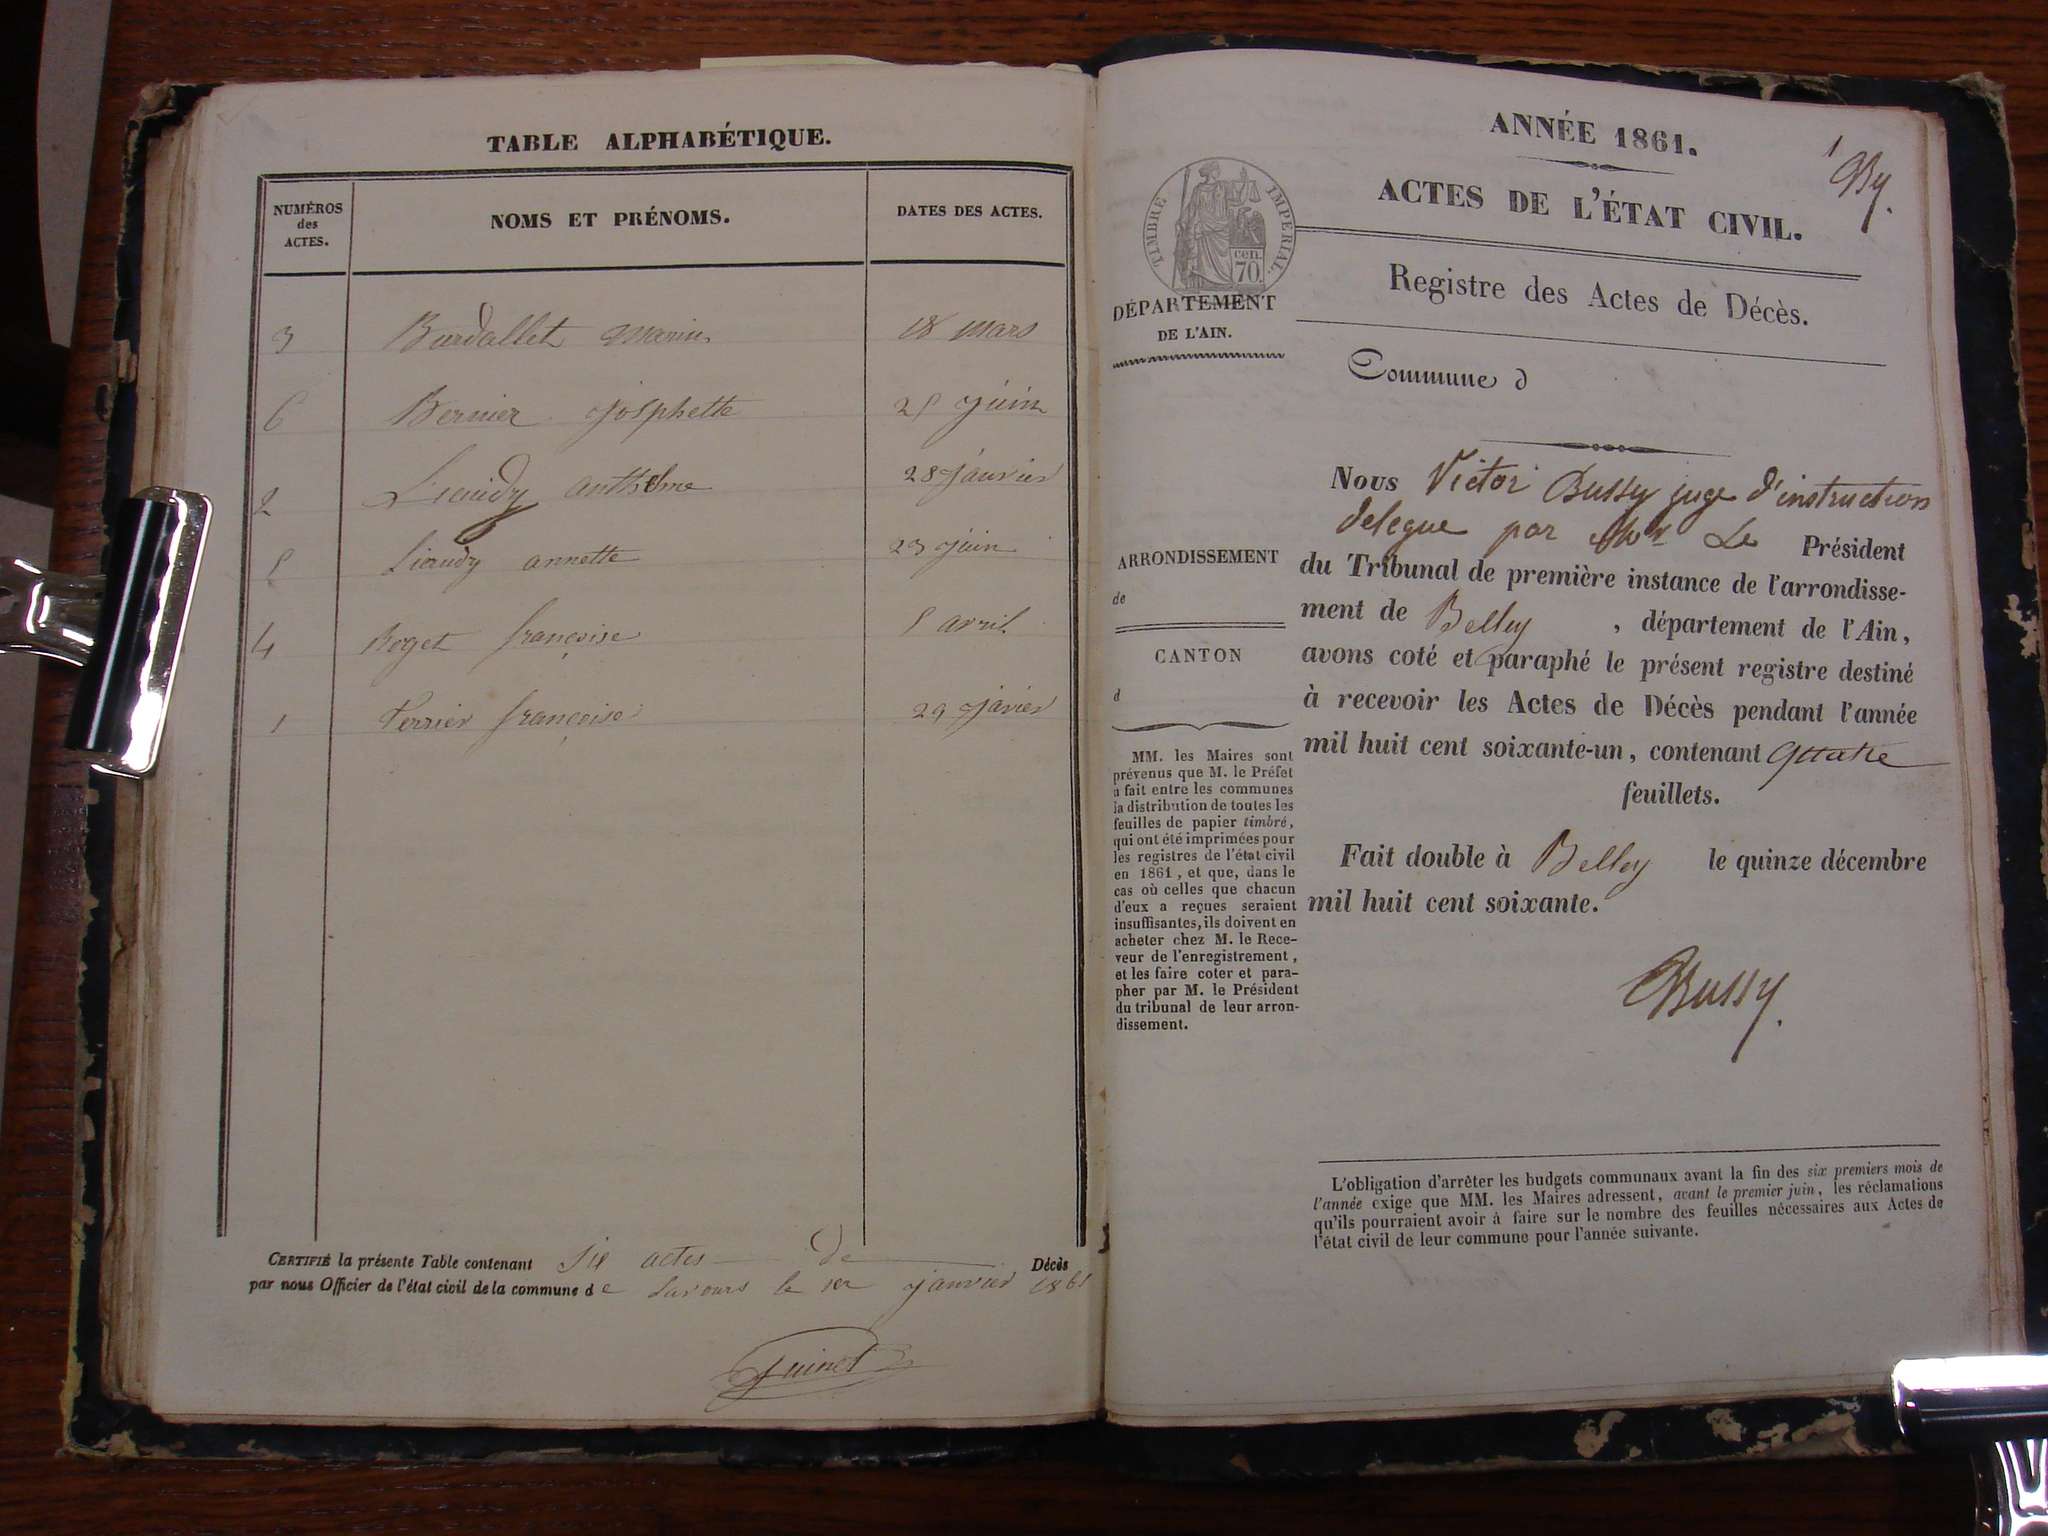 TABLE ALPHABÉTIQUE.
NUMÉROS
des
ACTES.
NOMS ET PRÉNOMS.
DATES DES ACTES.
3 Burdallet Marius 18 mars
6 Bernier josphette 25 juin
2 Lieudy anthelme 28 janvier
5 Lieudy annette 23 juin
4 Roget françoise 5 avril
1 Perrier françoise 29 javier
CERTIFIÉ la présente Table contenant Six actes de Décès
par nous Officier de l'état civil de la commune de Lavours le 1er janvier 1861
Guinet
ANNÉE 1861.
1
By.
ACTES DE L'ÉTAT CIVIL.
TIMBRE IMPÉRIAL.
70 cen.
DÉPARTEMENT
DE L'AIN.
Registre des Actes de Décès.
Commune d
Nous Victor Bussy juge d'instruction
delegue par Mr Le Président
du Tribunal de première instance de l'arrondisse-
ment de Belley, département de l'Ain,
avons coté et paraphé le présent registre destiné
à recevoir les Actes de Décès pendant l'année
mil huit cent soixante-un, contenant quatre
feuillets.
Fait double à Belley le quinze décembre
mil huit cent soixante.
Bussy.
ARRONDISSEMENT
de
CANTON
d
MM. les Maires sont
prévenus que M. le Préfet
a fait entre les communes
la distribution de toutes les
feuilles de papier timbré,
qui ont été imprimées pour
les registres de l'état civil
en 1861, et que, dans le
cas où celles que chacun
d'eux a reçues seraient
insuffisantes, ils doivent en
acheter chez M. le Rece-
veur de l'enregistrement,
et les faire coter et para-
pher par M. le Président
du tribunal de leur arron-
dissement.
L'obligation d'arrêter les budgets communaux avant la fin des six premiers mois de
l'année exige que MM. les Maires adressent, avant le premier juin, les réclamations
qu'ils pourraient avoir à faire sur le nombre des feuilles nécessaires aux Actes de
l'état civil de leur commune pour l'année suivante.